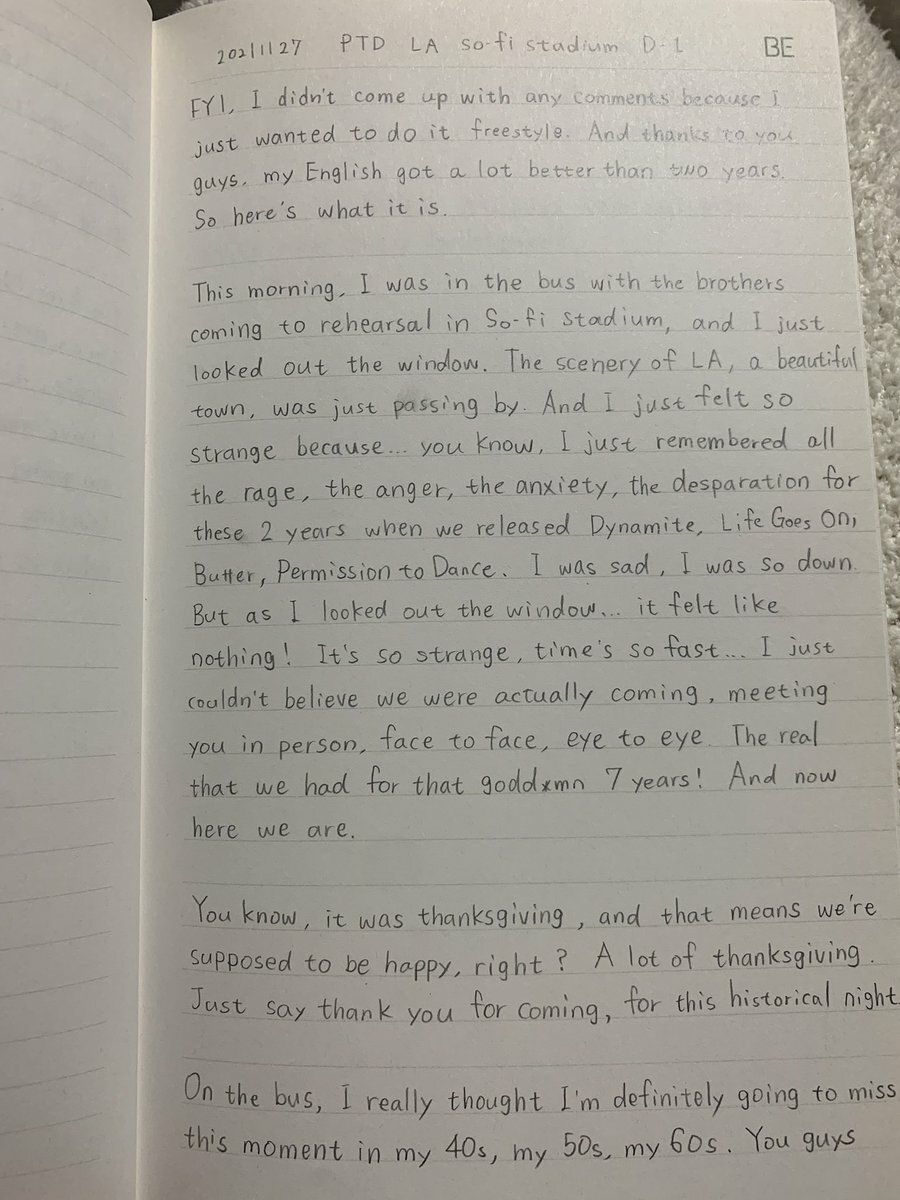 2021 1127 PTD LA so-fi stadium D-1 BE
FYI, I didn't come up with any comments because I
just wanted to do it freestyle. And thanks to you
guys, my English got a lot better than two years.
So here's what it is.
This morning, I was in the bus with the brothers
coming to rehearsal in So-fi Stadium, and I just
looked out the window. The scenery of LA, a beautiful
town, was just passing by. And I just felt so
strange because... you know, I just remembered all
the rage, the anger, the anxiety, the desparation for
these 2 years when we released Dynamite, Life Goes On,
Butter, Permission to Dance. I was sad, I was so down.
But as I looked out the window... it felt like
nothing! It's so strange, time's so fast... I just
couldn't believe we were actually coming, meeting
you in person, face to face, eye to eye. The real
that we had for that goddxmn 7 years! And now
here we are.
You know, it was thanksgiving, and that means we're
supposed to be happy, right? A lot of thanksgiving.
Just say thank you for coming, for this historical night
On the bus, I really thought I'm definitely going to miss
this moment in my 40s, my 50s, my 60s. You guys